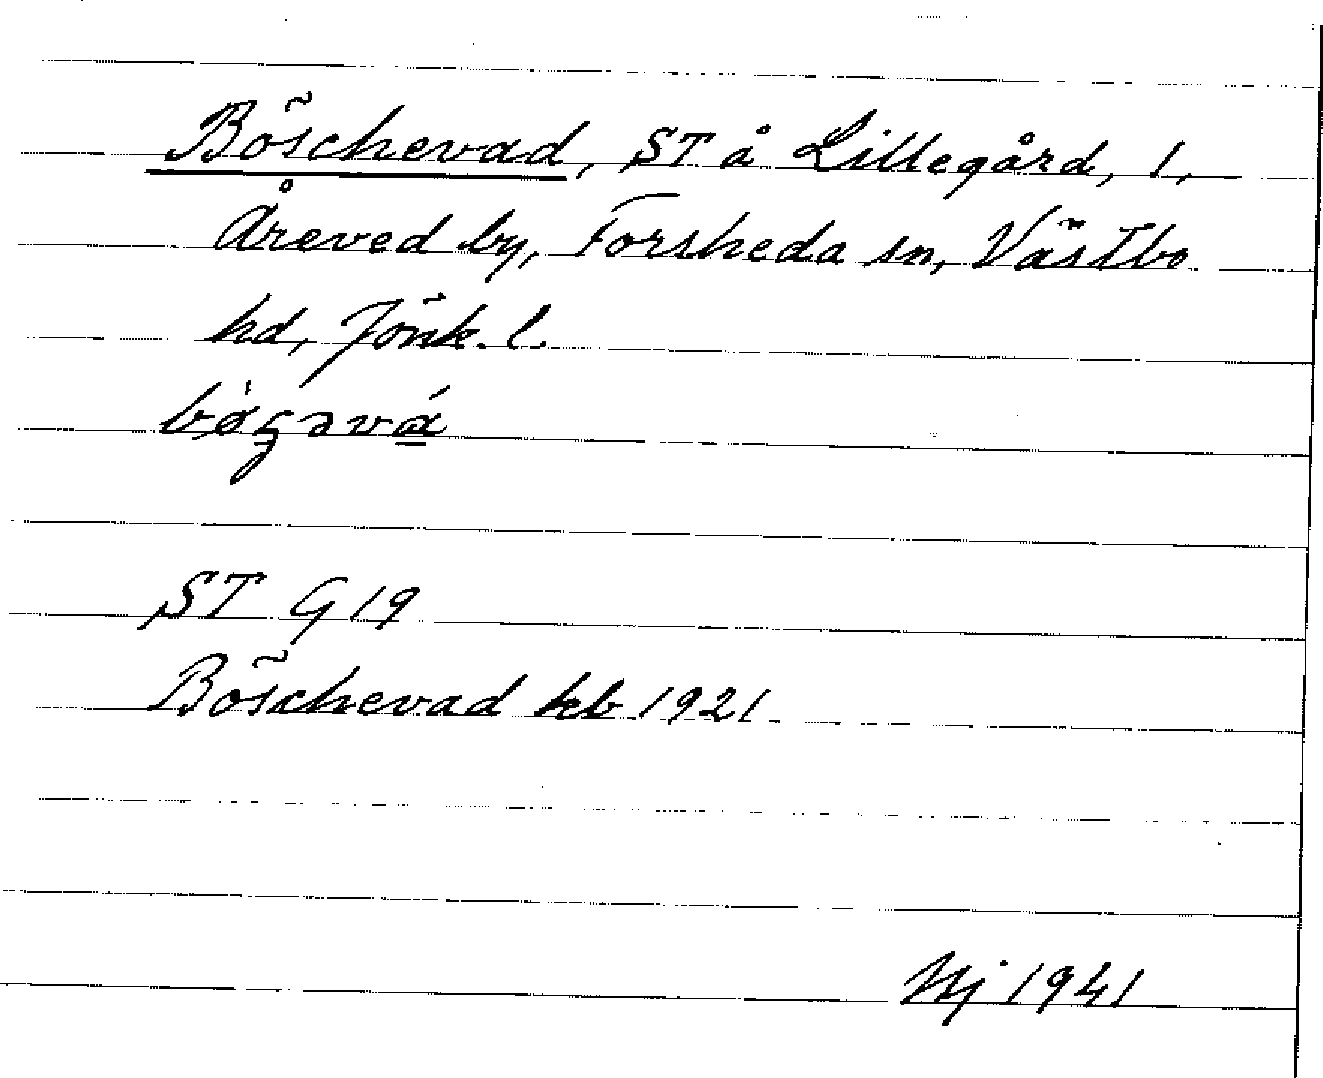 Böschevad, ST å Lillegård, 1,
Åreved by, Forsheda sn, Västbo
hd, Jönk. l.
ST G 19
Böschevad kb 1921
1941